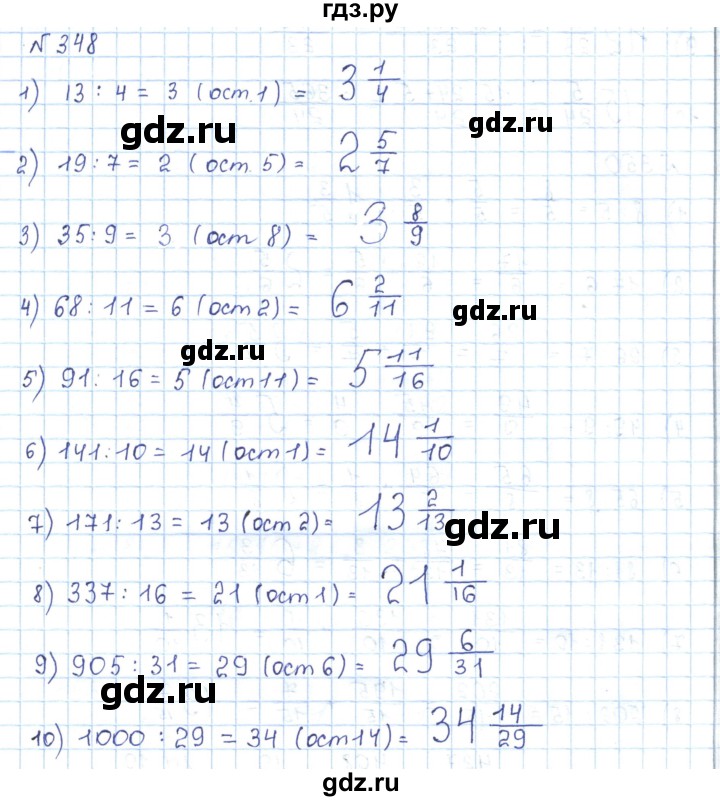 гдз.ру
№ 348
1) 13 : 4 = 3 (ост. 1) = 3 1/4
gdz.ru
gdz.ru
2) 19 : 7 = 2 (ост. 5) = 2 5/7
3) 35 : 9 = 3 (ост 8) = 3 8/9
4) 68 : 11 = 6 (ост 2) = 6 2/11
gdz.ru
gdz.ru
5) 91 : 16 = 5 (ост 11) = 5 11/16
6) 141 : 10 = 14 (ост 1) = 14 1/10
7) 171 : 13 = 13 (ост 2) = 13 2/13
gdz.ru
8) 337 : 16 = 21 (ост 1) = 21 1/16
9) 905 : 31 = 29 (ост 6) = 29 6/31
gdz.ru
10) 1000 : 29 = 34 (ост 14) = 34 14/29
gdz.ru